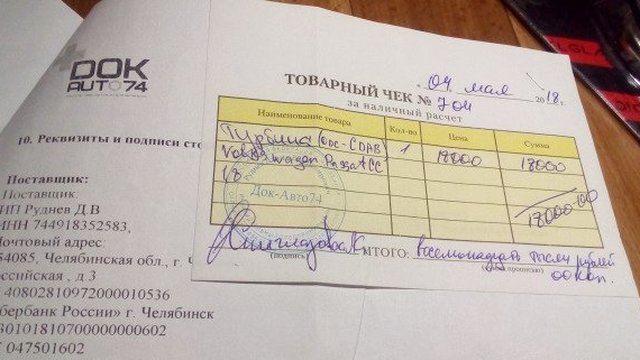 DOK
AUTO 74
10. Реквизиты и подписи сто
Поставщик:
Поставщик
ИП Руднев Д.В
ИНН 744918352583,
Почтовый адрес:
54085, Челябинская обл., г. Ч
оссийская , д.3
40802810972000010536
бербанк России» г. Челябинск
30101810700000000602
047501602
04 мая 2018 г.
ТОВАРНЫЙ ЧЕК № 704
за наличный расчет
Наименование товара Кол-во Цена Сумма
Турбина (BDC-CDAB 1 18000 18000
Volkswagen Passat CC
1,8
18000 00
Док-Авто74
ИТОГО: Восемнадцать тысяч рублей
(подпись) (сумма прописью)
00 коп.